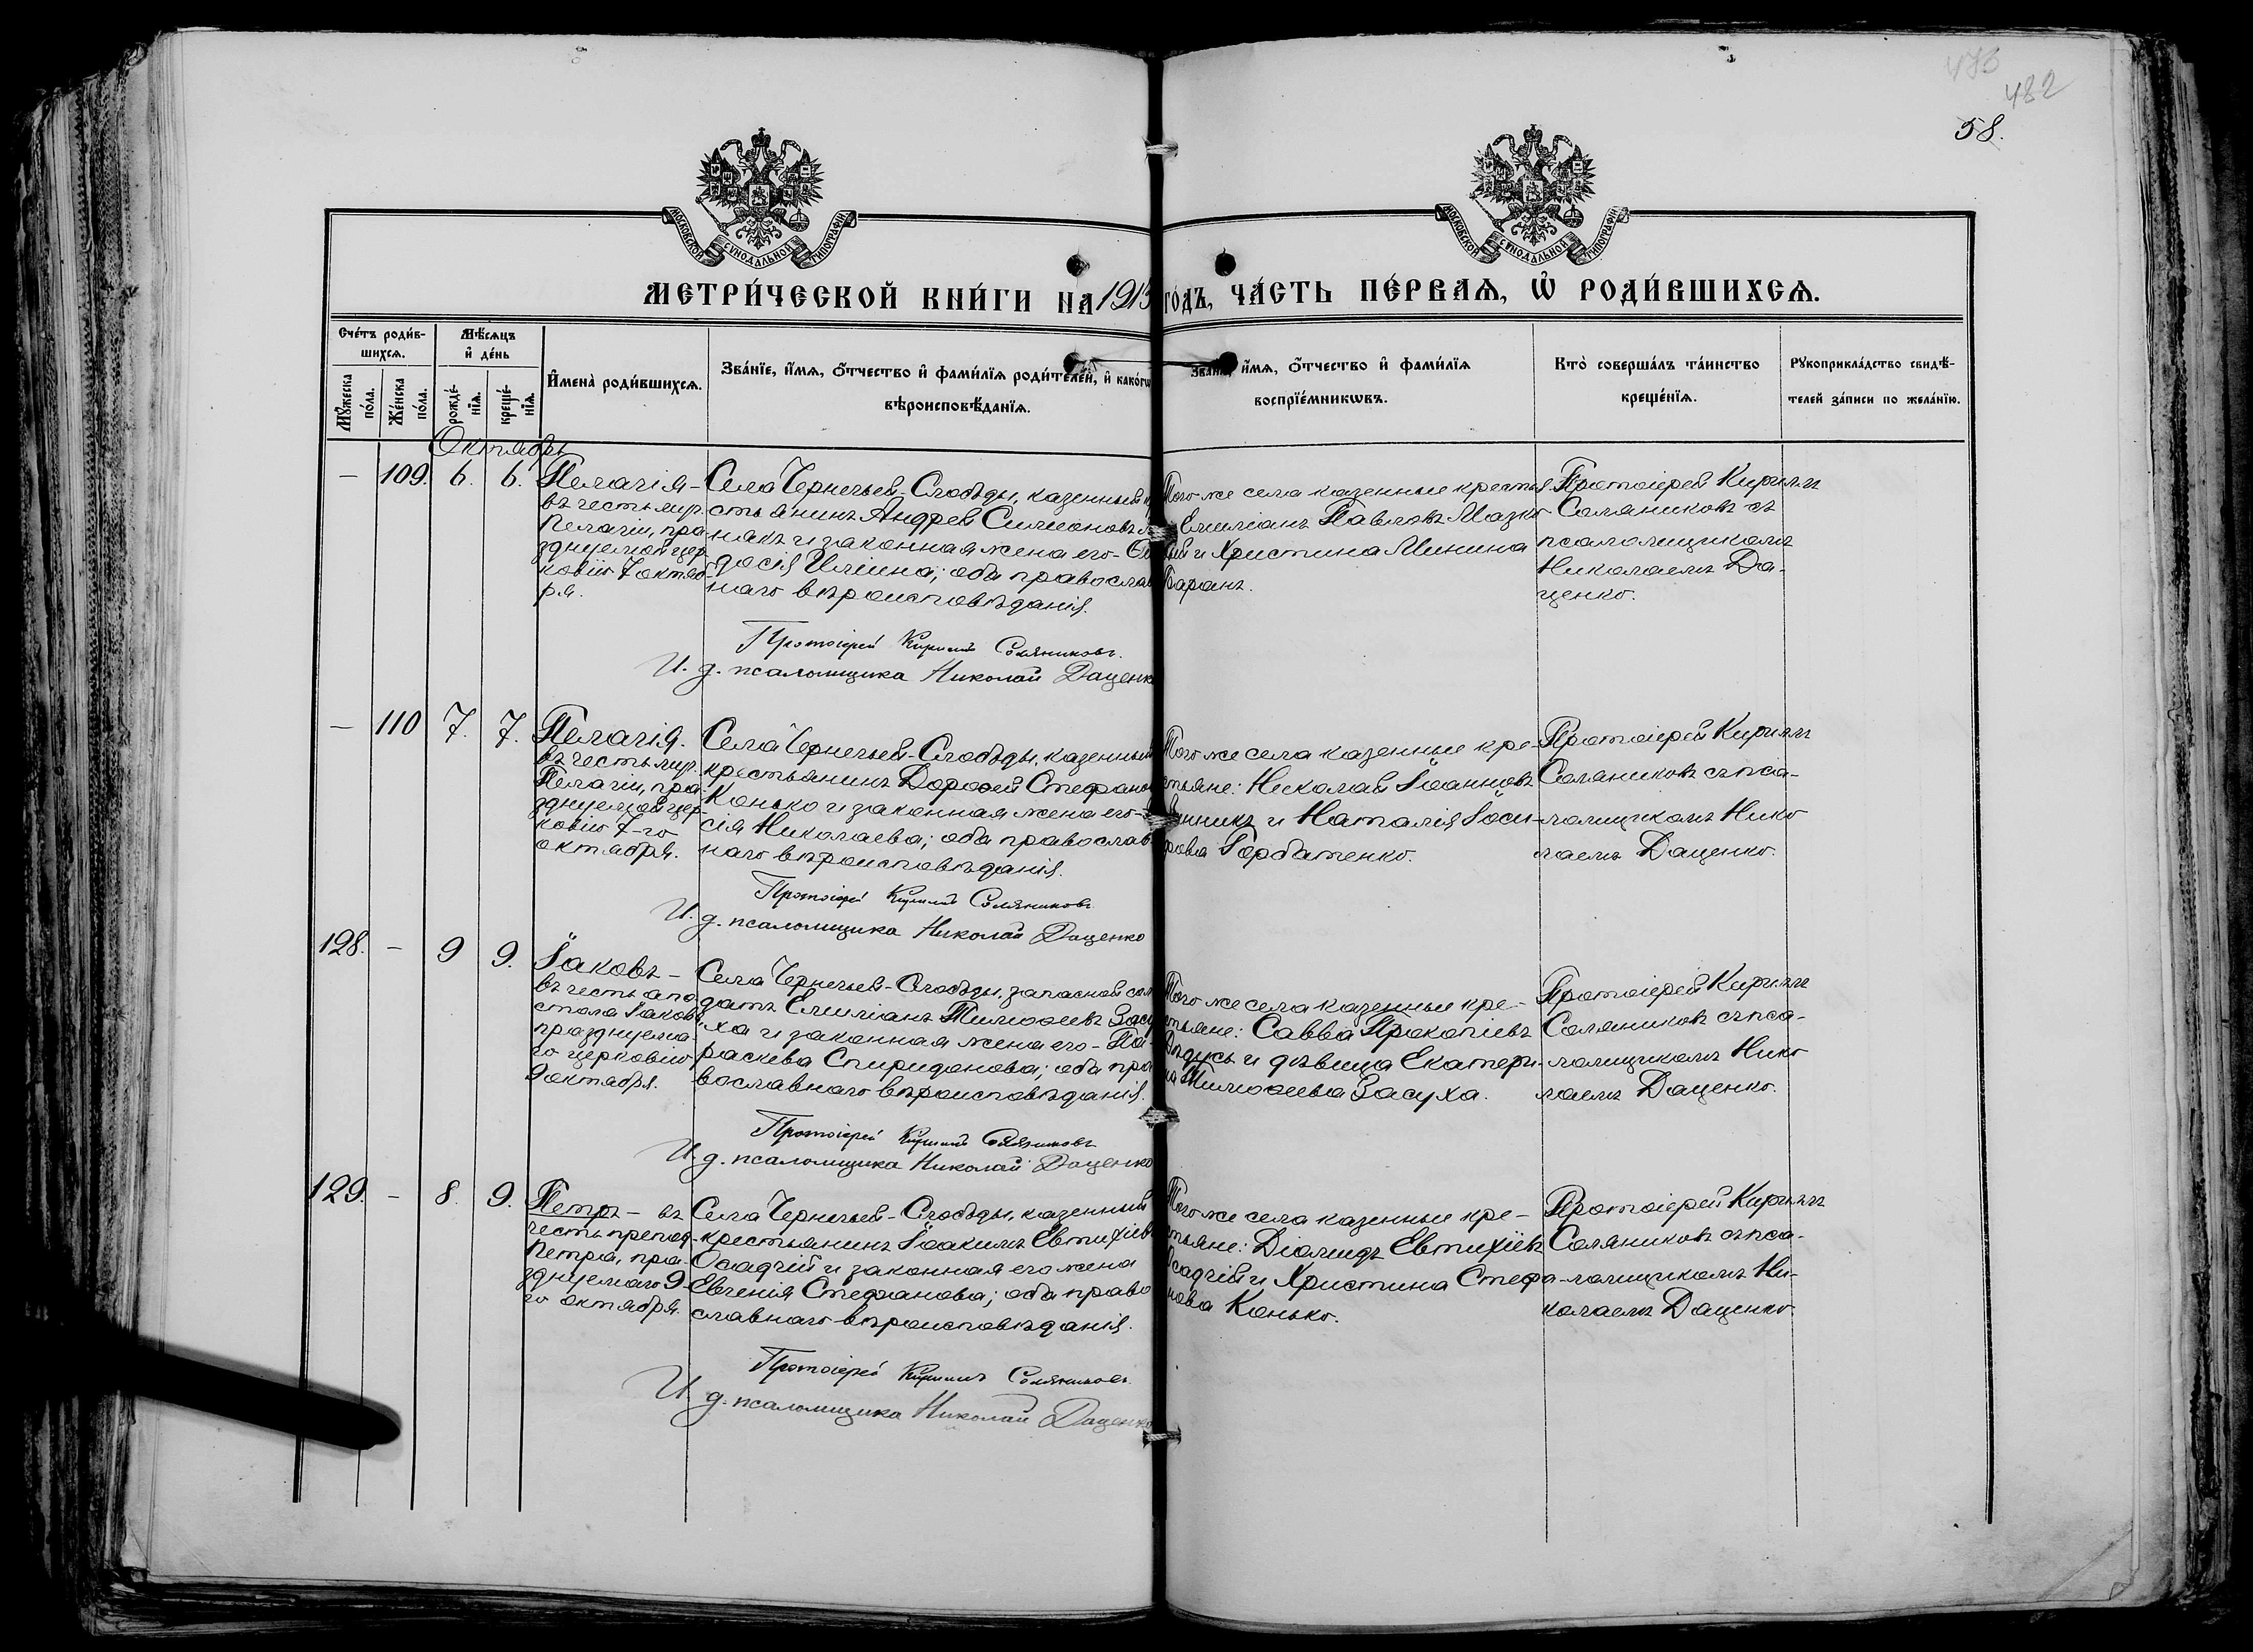 482
58.
МОСКОВСКОЙ СѴНОДАЛЬНОЙ ТИПОГРАФІИ
МОСКОВСКОЙ СѴНОДАЛЬНОЙ ТИПОГРАФІИ
МЕТРИ́ЧЕСКОЙ КНИ́ГИ НА 1913 ГО́ДЪ, ЧА́СТЬ ПЕ́РВАѦ, Ѡ҆ РОДИ́ВШИХСѦ.
Сче́тъ роди́в-
шихсѧ.
Мꙋ́жеска по́ла.
Же́нска по́ла.
Мѣ́сѧцъ
и҆ де́нь
рожде́-
нїѧ.
креще́-
нїѧ.
И҆мена̀ роди́вшихсѧ.
Зва́нїе, и҆́мѧ, ѻ҆́тчество и҆ фами́лїѧ роди́телей, и҆ како́гѡ
вѣроисповѣ́данїѧ.
Зва́нїе, и҆́мѧ, ѻ҆́тчество и҆ фами́лїѧ
воспрїе́мникѡвъ.
Кто̀ соверша́лъ та́инство
креще́нїѧ.
Рꙋкоприкла́дство свидѣ́-
телей за́писи по жела́нїю.
Октябрь
— 109. 6. 6.
Пелагія —
въ честь муч.
Пелагіи, пра
зднуемой цер
ковію 7 октяб-
ря.
Села Чернечьей-Слободы, казенный
стьянинъ Андрей Симеоновъ
накъ и законная жена его-
досія Иліина; оба православ
наго вѣроисповѣданія.
Того же села казенные крестья
Емиліанъ Павловъ Мазко
ій и Христина Минина
Баранъ.
Протоіерей Кириллъ
Соляниковъ съ
псаломщикомъ
Николаемъ Да-
ценко.
Протоіерей Кириллъ Соляниковъ.
И. д. псаломщика Николай Даценко
— 110 7. 7.
Пелагія.
въ честь муч.
Пелагіи, пра-
зднуемой цер-
ковію 7-го
октября.
Села Чернечьей-Слободы, казенный
крестьянинъ Дороѳей Стефанов
Конько и законная жена его-
сія Николаева; оба православ-
наго вѣроисповѣданія.
Того же села казенные кре-
стьяне: Николай Іоанновъ
и Наталія Іоси-
фова Горбатенко.
Протоіерей Кириллъ
Соляниковъ съ пса-
ломщикомъ Нико
лаемъ Даценко.
Протоіерей Кириллъ Соляниковъ
И. д. псаломщика Николай Даценко
128. — 9 9.
Іаковъ —
въ честь апо
стола Іакова
празднуема-
го церковію
9 октября.
Села Чернечьей-Слободы, запасной сол
датъ Емиліанъ Тимоѳеевъ Засу
ха и законная жена его — Па-
раскева Спиридонова; оба пра
вославнаго вѣроисповѣданія.
Того же села казенные кре-
стьяне: Савва Прокопіевъ
и дѣвица Екатери-
на Тимоѳеева Засуха.
Протоіерей Кириллъ
Соляниковъ съ псa-
ломщикомъ Нико
лаемъ Даценко.
Протоіерей Кириллъ Соляниковъ
И. д. псаломщика Николай Даценко
129. — 8. 9.
Петръ — въ
честь препод
Петра, пра-
зднуемаго 9-
го октября.
Села Чернечьей-Слободы, казенный
крестьянинъ Іоакимъ Евтихіевъ
Осадчій и законная его жена
Евгенія Стефанова; оба право
славнаго вѣроисповѣданія.
Того же села казенные кре-
стьяне: Діомидъ Евтихіевъ
Осадчій и Христина Стефа-
нова Конько.
Протоіерей Кириллъ
Соляниковъ съ пса-
ломщикомъ Ни-
колаемъ Даценко
Протоіерей Кириллъ Соляниковъ.
И. д. псаломщика Николай Даценко